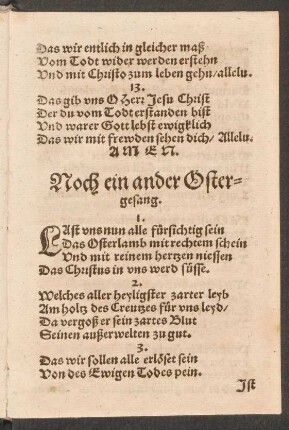 Das wir entlich in gleicher maß
Vom Todt wider werden erstehn
Vnd mit Christo zum leben gehn/allelu.
13.
Das gib vns O Herr Jesu Christ
Der du vom Todt erstanden bist
Vnd warer Gott lebst ewigklich
Das wir mit frewden sehen dich/ Allelu.
AMEN.
Noch ein ander Oster-
gesang.
1.
LAst vns nun alle fürsichtig sein
Das Osterlamb mit rechtem schein
Vnd mit reinem hertzen niessen
Das Christus in vns werd süsse.
2.
Welches aller heyligster zarter leyb
Am holtz des Creutzes für vns leyd/
Da vergoß er sein zartes Blut
Seinen außerwelten zu gut.
3.
Das wir sollen alle erlöset sein
Von des Ewigen Todes pein.
Ist